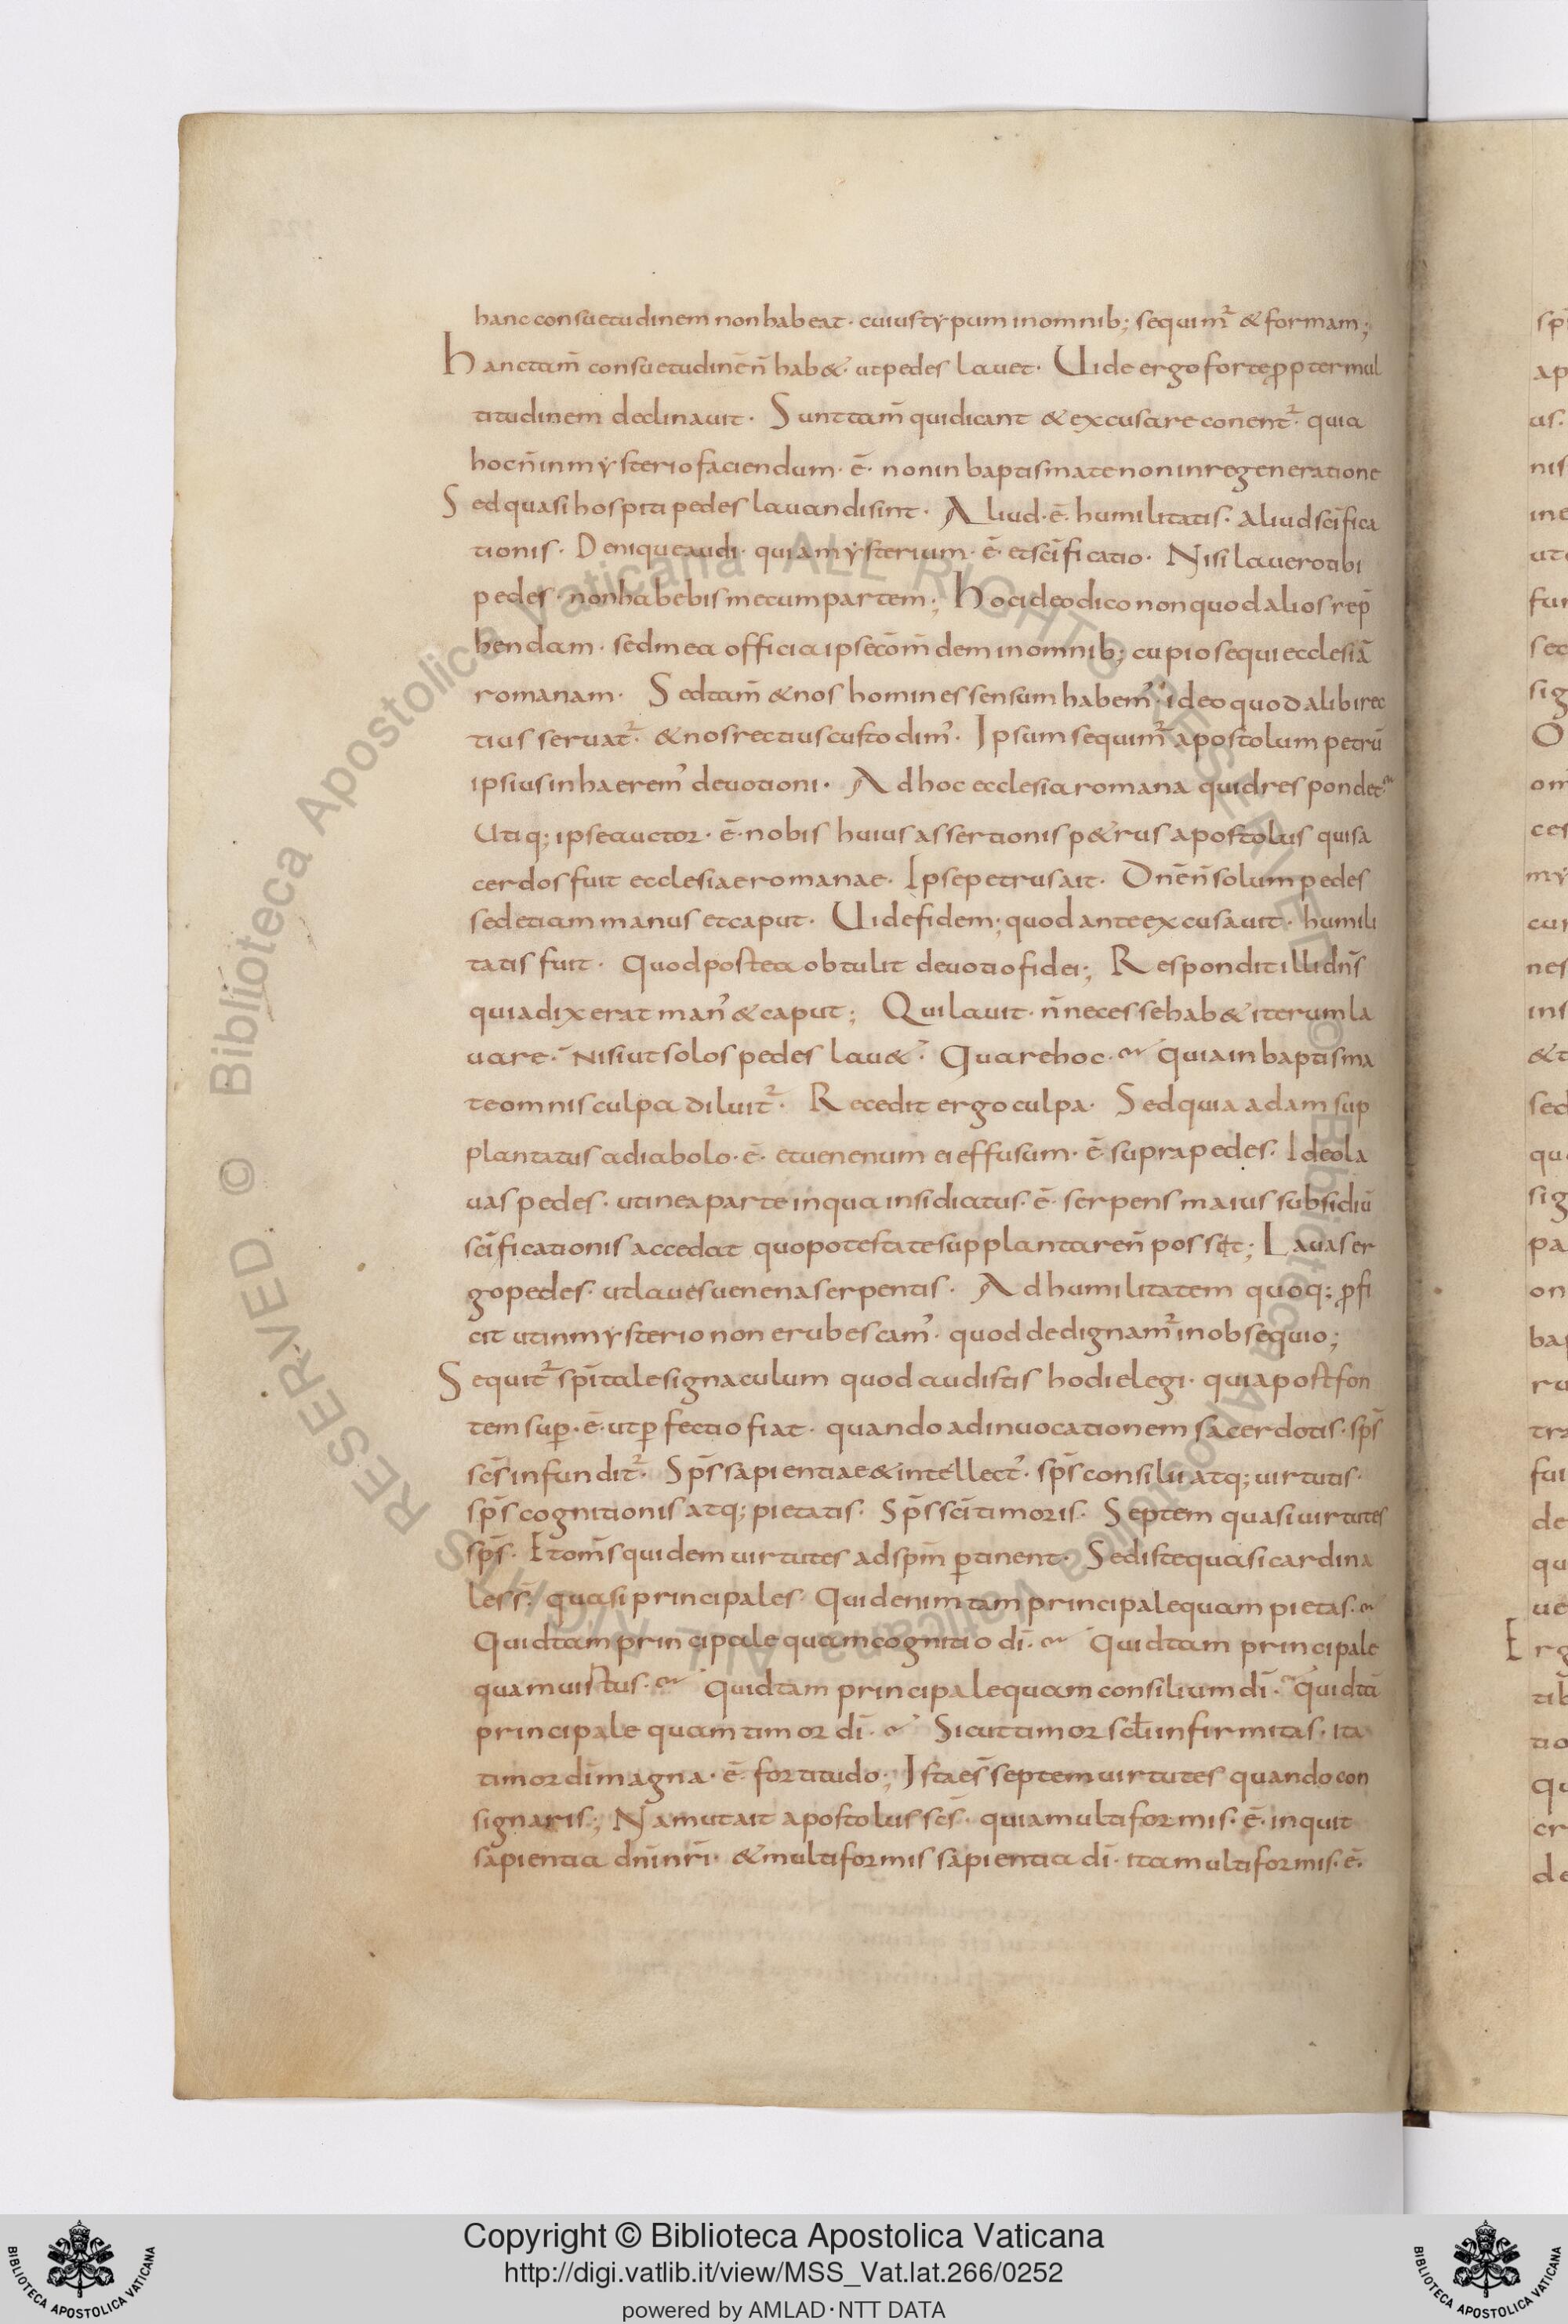 hanc consuetudinem non habeat · cuius typum in omnib; sequim̄ & formam;
Hanc tam̄ consuetudinē n̄ hab& · ut pedes lauet · Uide ergo forte ꝓpter mul
titudinem declinauit · Sunt tam̄ qui dicant & excusare conent̄ · quia
hoc n̄ in mysterio faciendum · ē · non in baptismate non in regeneratione
Sed quasi hospiti pedes lauandi sint · Aliud · ē · humilitatis · aliud sc̄ifica
tionis · Denique audi · quia mysterium · ē · et sc̄ificatio · Nisi lauero tibi
pedes · non habebis mecum partem; Hoc ideo dico non quod alios rep̄
hendam · sed mea officia ipse com̄dem in omnib; cupio sequi ecclesiā
romanam · Sed tam̄ & nos homines sensum habem᾿ · ideo quod alibi rec
tius seruat̄ · & nos rectius custodim᾿ · Ipsum sequim̄ apostolum petrū
ipsius inhaerem᾿ deuotioni · Ad hoc ecclesia romana quid respondet ·
Utiq; ipse auctor · ē · nobis huius assertionis p&rus apostolus qui sa
cerdos fuit ecclesiae romanae · Ipse petrus ait · Dn̄e n̄ solum pedes
sed etiam manus et caput · Uide fidem; quod ante excusauit · humili
tatis fuit · quod postea obtulit deuotio fidei; Respondit illi dn̄s
quia dixerat man᾿ & caput; Qui lauit · n̄ necesse hab& iterum la
uare · nisi ut solos pedes lau& · Quare hoc · quia in baptisma
te omnis culpa diluit̄ · Recedit ergo culpa · Sed quia adam sup
plantatus a diabolo · ē · et uenenum ei effusum · ē supra pedes · Ideo la
uas pedes · ut in ea parte in qua insidiatus · ē · serpens maius subsidiū
sc̄ificationis accedat quo potestate supplantare n̄ posset; Lauas er
go pedes · ut laues uenena serpentis · Ad humilitatem quoq; ꝓfi
cit ut in mysterio non erubescam᾿ · quod dedignam̄ in obsequio;
Sequit̄ sp̄itale signaculum quod audistis hodie legi · quia post fon
tem suꝑ · ē · ut ꝑfectio fiat · quando ad inuocationem sacerdotis · sp̄s
sc̄s infundit̄ · Sp̄s sapientiae & intellect᾿ · sp̄s consilii atq; uirtutis ·
sp̄s cognitionis atq; pietatis · Sp̄s sc̄i timoris · Septem quasi uirtutes
sp̄s · Et om̄s quidem uirtutes ad sp̄m ꝑtinent · Sed iste quasi cardina
les s̄ · quasi principales · Quid enim tam principale quam pietas ·
Quid tam principale quam cognitio dī · Quid tam principale
quam uirtus · Quid tam principale quam consilium dī · quid tā
principale quam timor dī · Sicut timor sc̄li infirmitas · ita
timor dī magna · ē · fortitudo; Ista es̄ septem uirtutes quando con
signaris; Nam ut ait apostolus sc̄s · quia multiformis · ē · inquit
sapientia dn̄i nr̄i · & multiformis sapientia dī · ita multiformis · ē ·
Copyright © Biblioteca Apostolica Vaticana
http://digi.vatlib.it/view/MSS_Vat.lat.266/0252
powered by AMLAD·NTT DATA